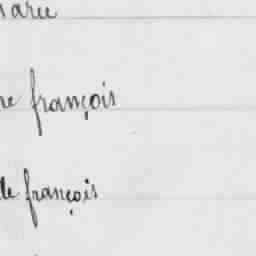 arie
re françois
de françois